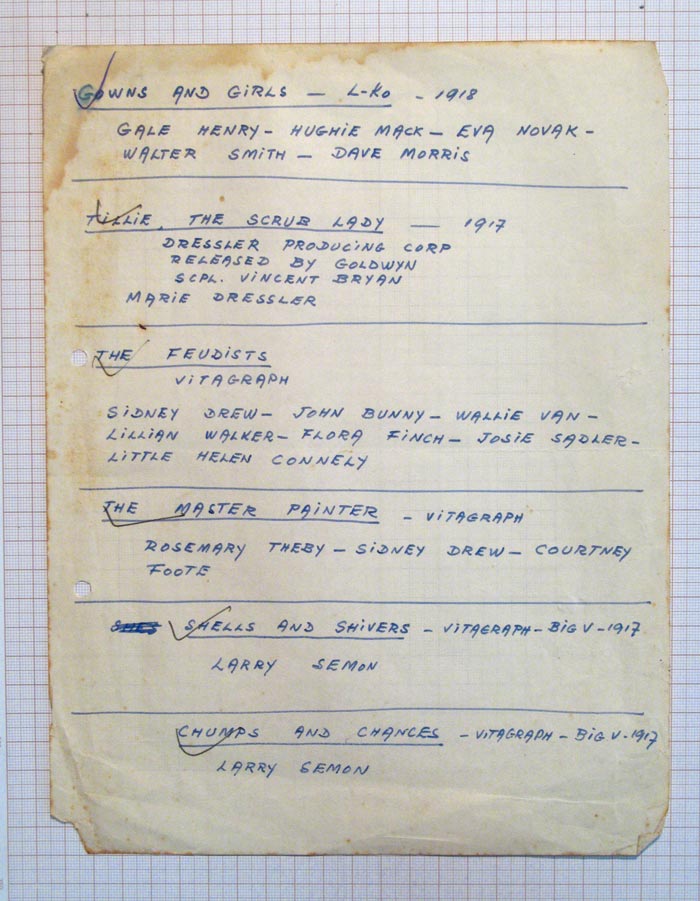 GOWNS AND GIRLS — L-KO - 1918
GALE HENRY - HUGHIE MACK - EVA NOVAK -
WALTER SMITH - DAVE MORRIS
TILLIE, THE SCRUB LADY — 1917
DRESSLER PRODUCING CORP
RELEASED BY GOLDWYN
SCPL. VINCENT BRYAN
MARIE DRESSLER
THE FEUDISTS
VITAGRAPH
SIDNEY DREW - JOHN BUNNY - WALLIE VAN -
LILLIAN WALKER - FLORA FINCH - JOSIE SADLER -
LITTLE HELEN CONNELY
THE MASTER PAINTER - VITAGRAPH
ROSEMARY THEBY - SIDNEY DREW - COURTNEY
FOOTE
SHELLS AND SHIVERS - VITAGRAPH - BIG V - 1917
LARRY SEMON
CHUMPS AND CHANCES - VITAGRAPH - BIG V - 1917
LARRY SEMON